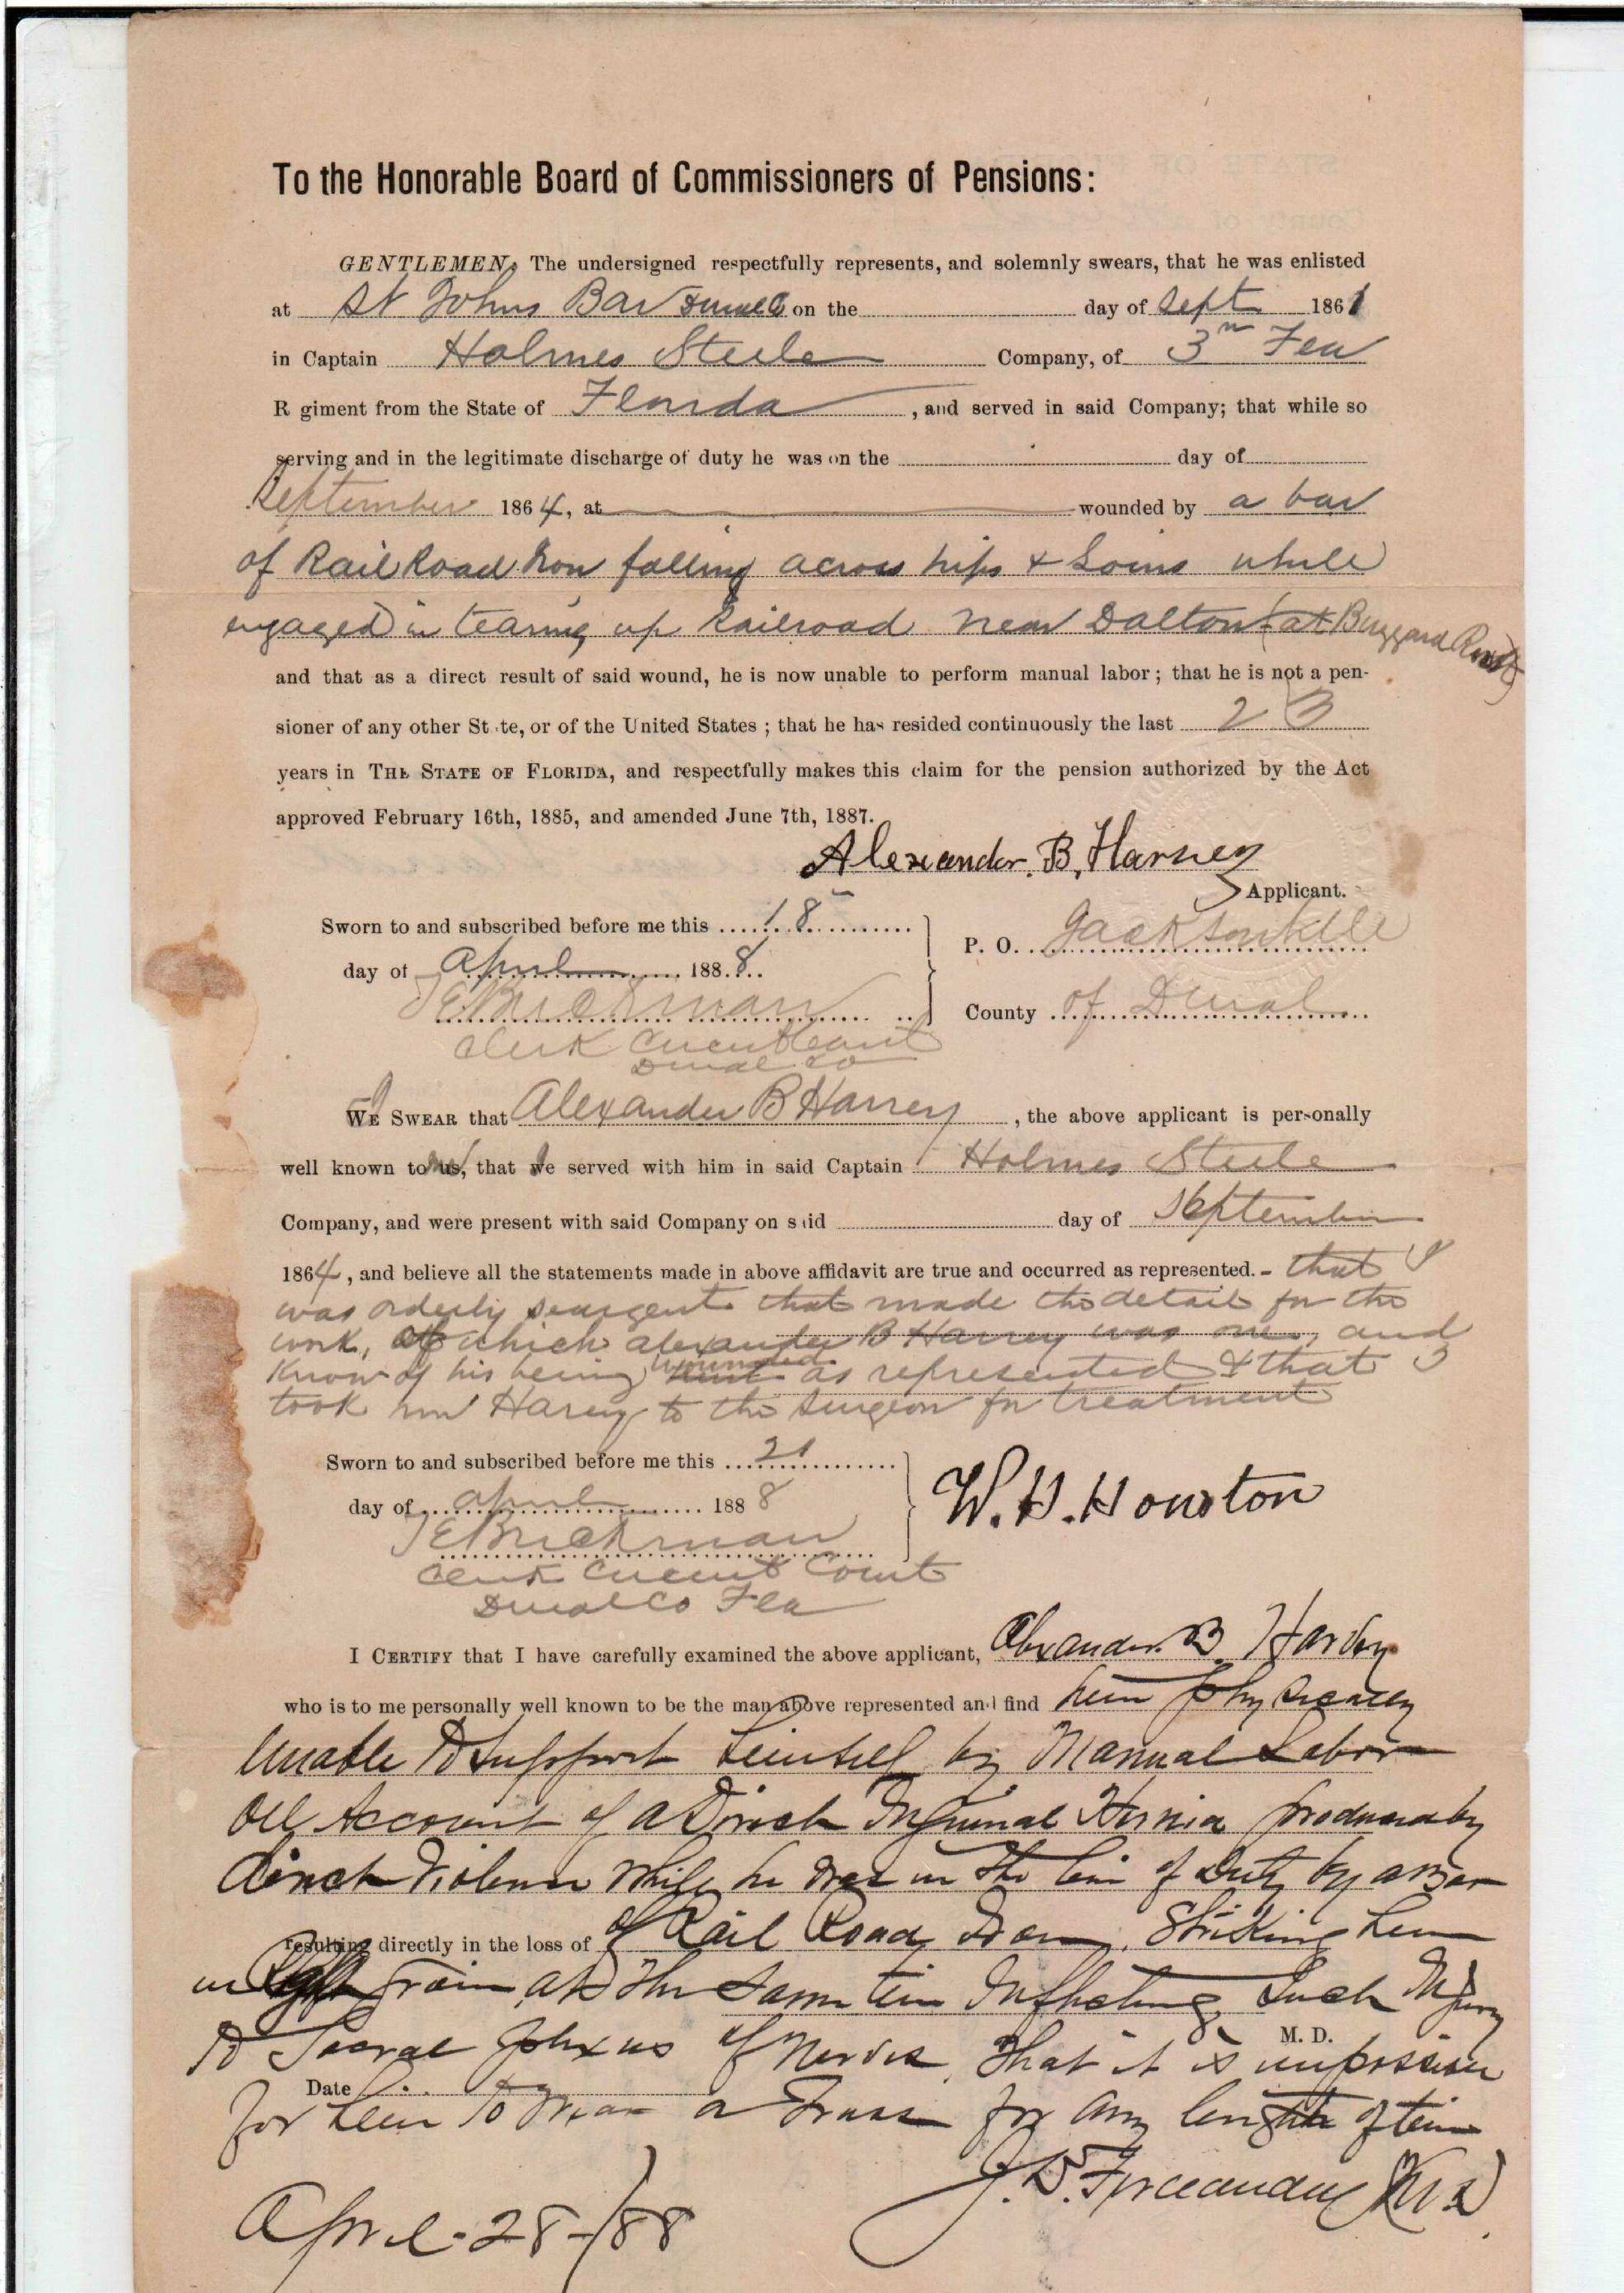 To the Honorable Board of Commissioners of Pensions:
GENTLEMEN: The undersigned respectfully represents, and solemnly swears, that he was enlisted
at St Johns Bar Duval Co on the day of Sept 1861
in Captain Holmes Steele Company, of 3rd Fla
R giment from the State of Florida , and served in said Company; that while so
serving and in the legitimate discharge of duty he was on the day of
September 1864, at wounded by a bar
of Rail Road Iron falling across hips & Loins while
engaged in tearing up Railroad near Dalton (at Buzzard Roost)
and that as a direct result of said wound, he is now unable to perform manual labor; that he is not a pen-
sioner of any other St te, or of the United States; that he has resided continuously the last 23
years in THE STATE OF FLORIDA, and respectfully makes this claim for the pension authorized by the Act
approved February 16th, 1885, and amended June 7th, 1887.
Alexander. B. Harvey
Applicant.
Sworn to and subscribed before me this 18
day of April 1888
P. O. Jacksonville
T E Buckman
County of Duval
Clerk Circuit Court
Duval Co
I
WE SWEAR that Alexander B Harvey , the above applicant is personally
well known to us, me that we I served with him in said Captain Holmes Steele
Company, and were present with said Company on s id day of September
1864, and believe all the statements made in above affidavit are true and occurred as represented. - that I
was orderly seargent that made the detail for the
work, of which Alexander B Harvey was one, and
know of his being wounded as represented & that I
took him Harvey to the surgeon for treatment
Sworn to and subscribed before me this 21
day of April 1888
W. H. Houston
T E Buckman
Clerk Circuit Court
Duval Co Fla
I CERTIFY that I have carefully examined the above applicant, Alexander. B. Harvey
who is to me personally well known to be the man above represented and find him physically
Unable to support himself by Manual Labor
On Account of a Direct Inguinal Hernia produced by
direct violence while he was in the line of Duty by a Bar
resulting directly in the loss of of Rail Road Iron, Striking him
in groin, at the same time Inflicting such Injury
M. D.
to Sacral plexus of Nerves, that it is impossible
Date
for him to wear a Truss for any length of time
J. D. Fernandez M D.
April-28-/88